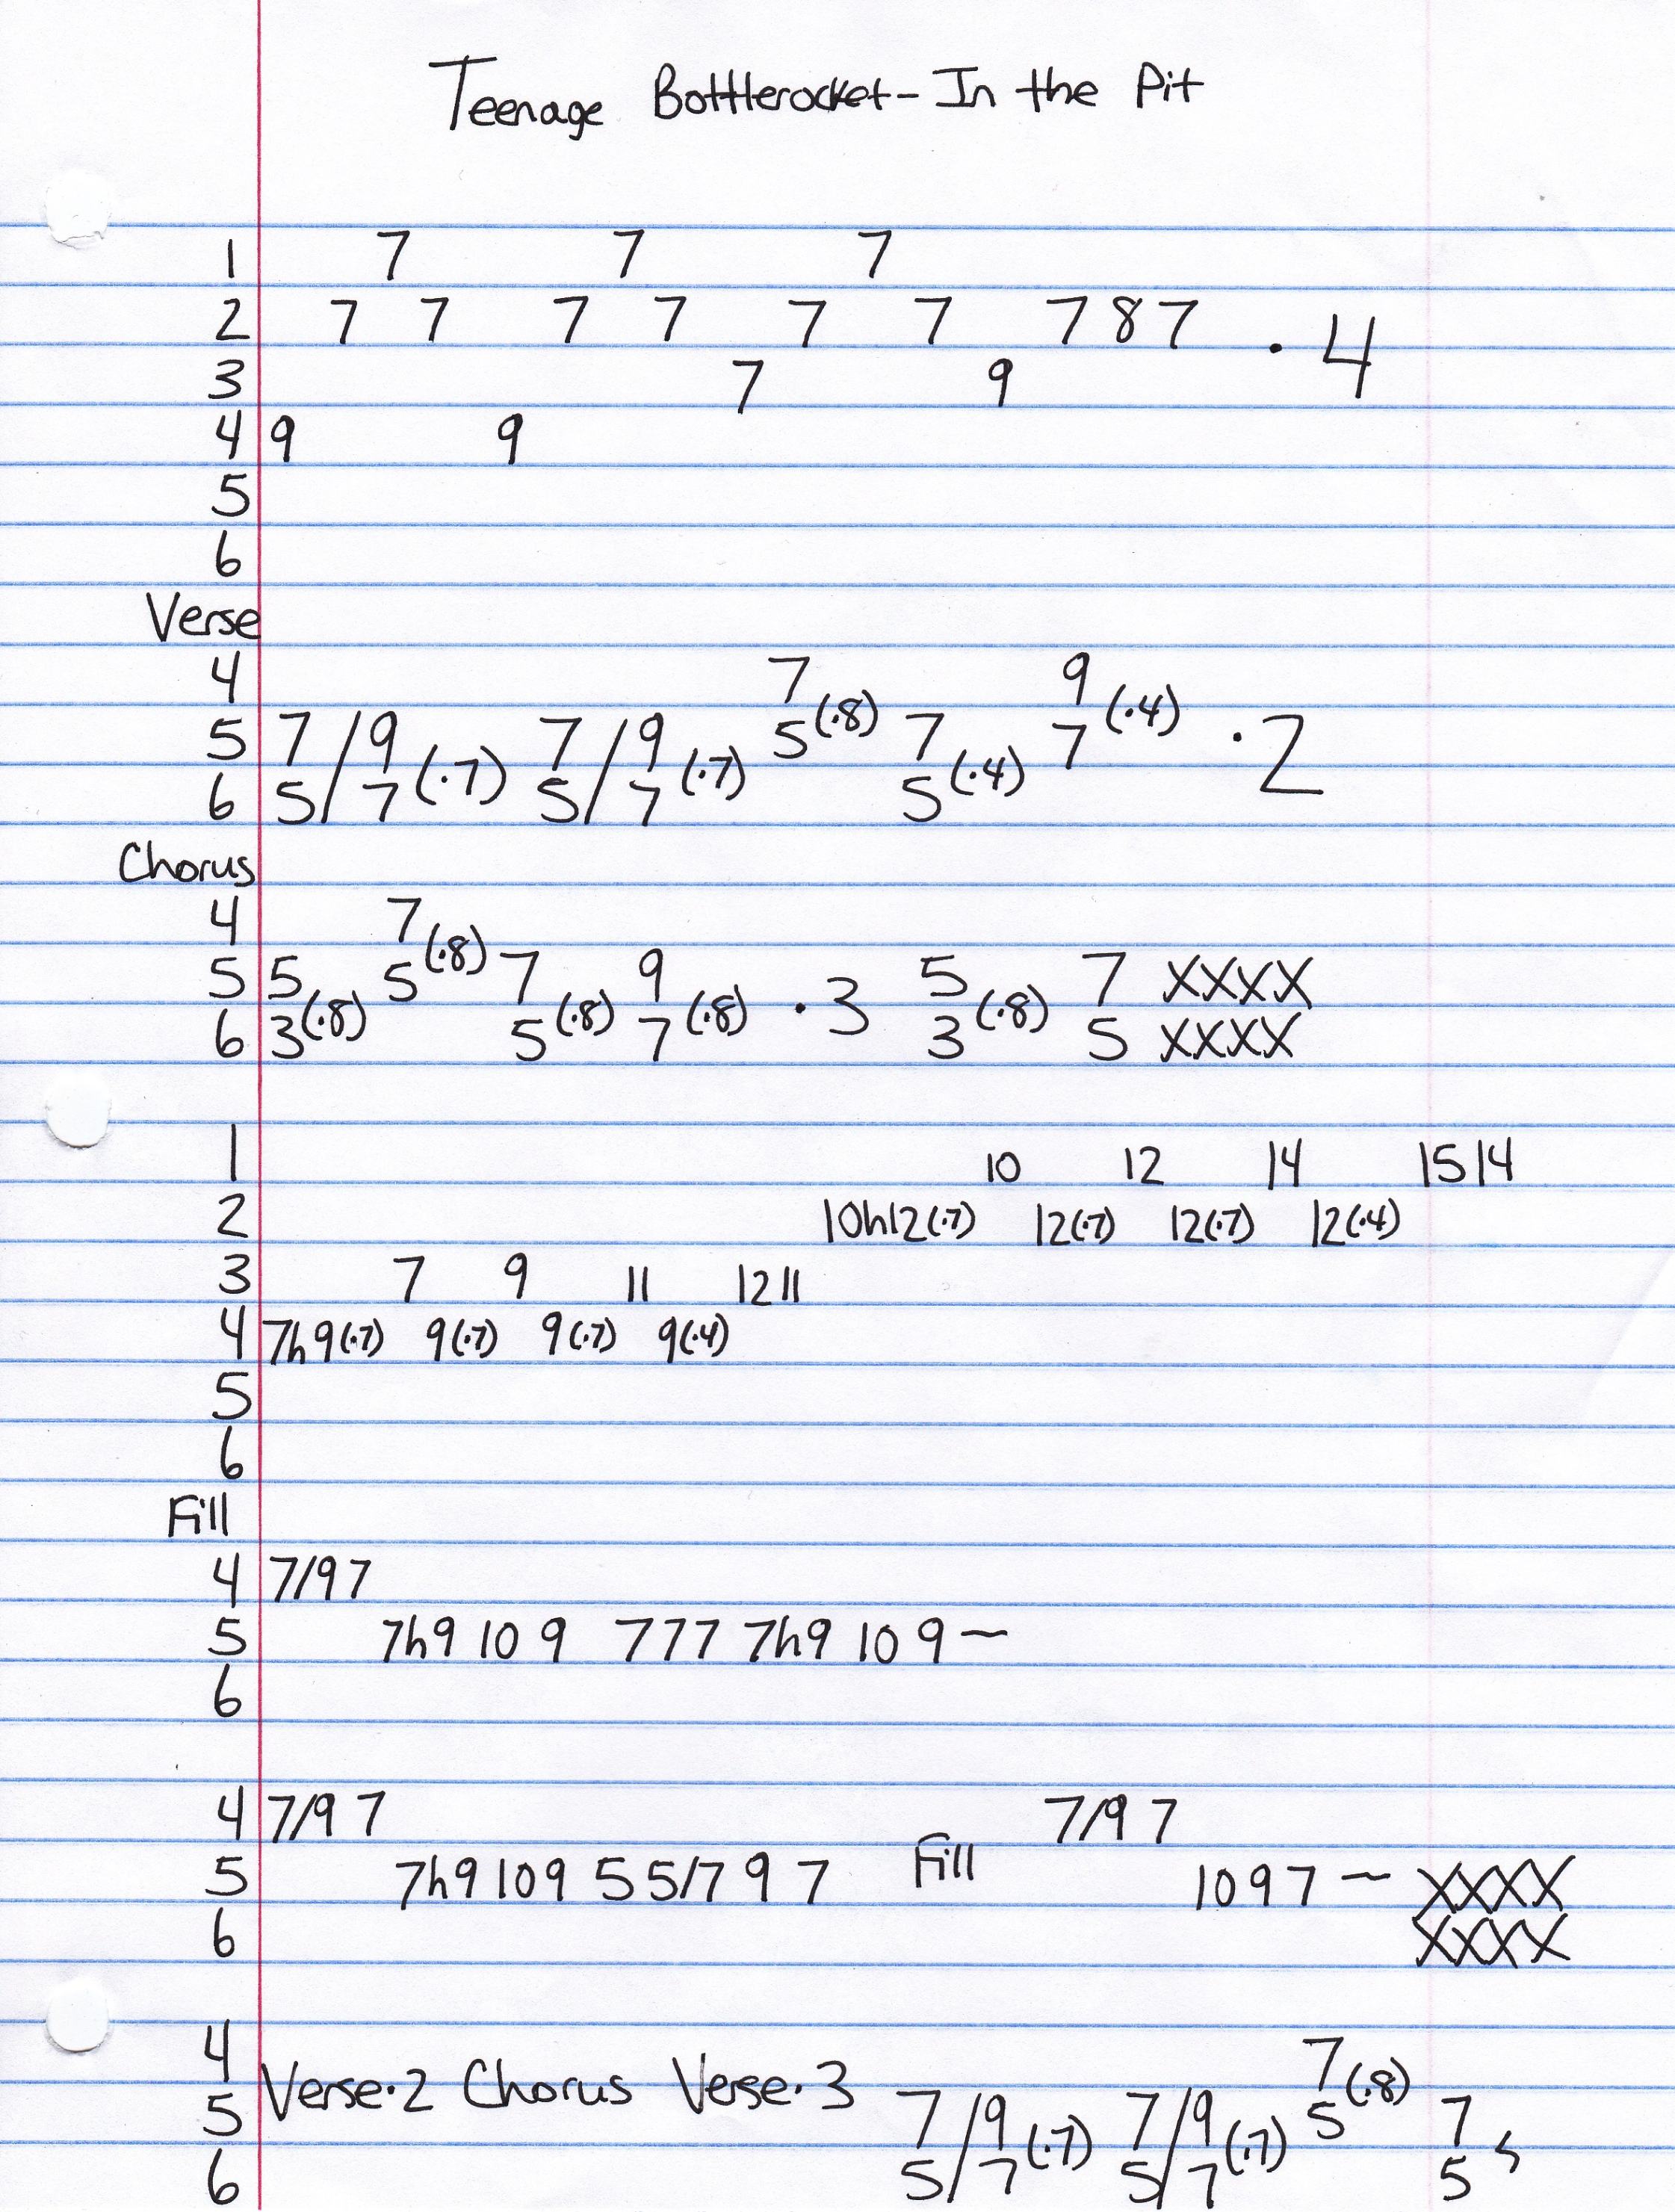 Teenage Bottlerocket - In the Pit
1 7 7 7
2 7 7 7 7 7 7 7 8 7 · 4
3 7 9
4 9 9
5
6
Verse
4 7 9
5 7 / 9 7 / 9 5 (·8) 7 7 (·4) · 2
6 5 / 7 (·7) 5 / 7 (·7) 5 (·4)
Chorus
4 7
5 5 5 (·8) 7 9 5 7 XXXX
6 3 (·8) 5 (·8) 7 (·8) · 3 3 (·8) 5 XXXX
1 10 12 14 15 14
2 10h12(·7) 12(·7) 12(·7) 12(·4)
3 7 9 11 12 11
4 7h9(·7) 9(·7) 9(·7) 9(·4)
5
6
Fill
4 7/9 7
5 7h9 10 9 7 7 7 7h9 10 9 ~
6
4 7/9 7 7/9 7
5 7h9 10 9 5 5/7 9 7 Fill 10 9 7 ~ XXXX
6 XXXX
4 7 (·8)
5 Verse·2 Chorus Verse·3 7 / 9 7 / 9 5 7
6 5 / 7 (·7) 5 / 7 (·7) 5